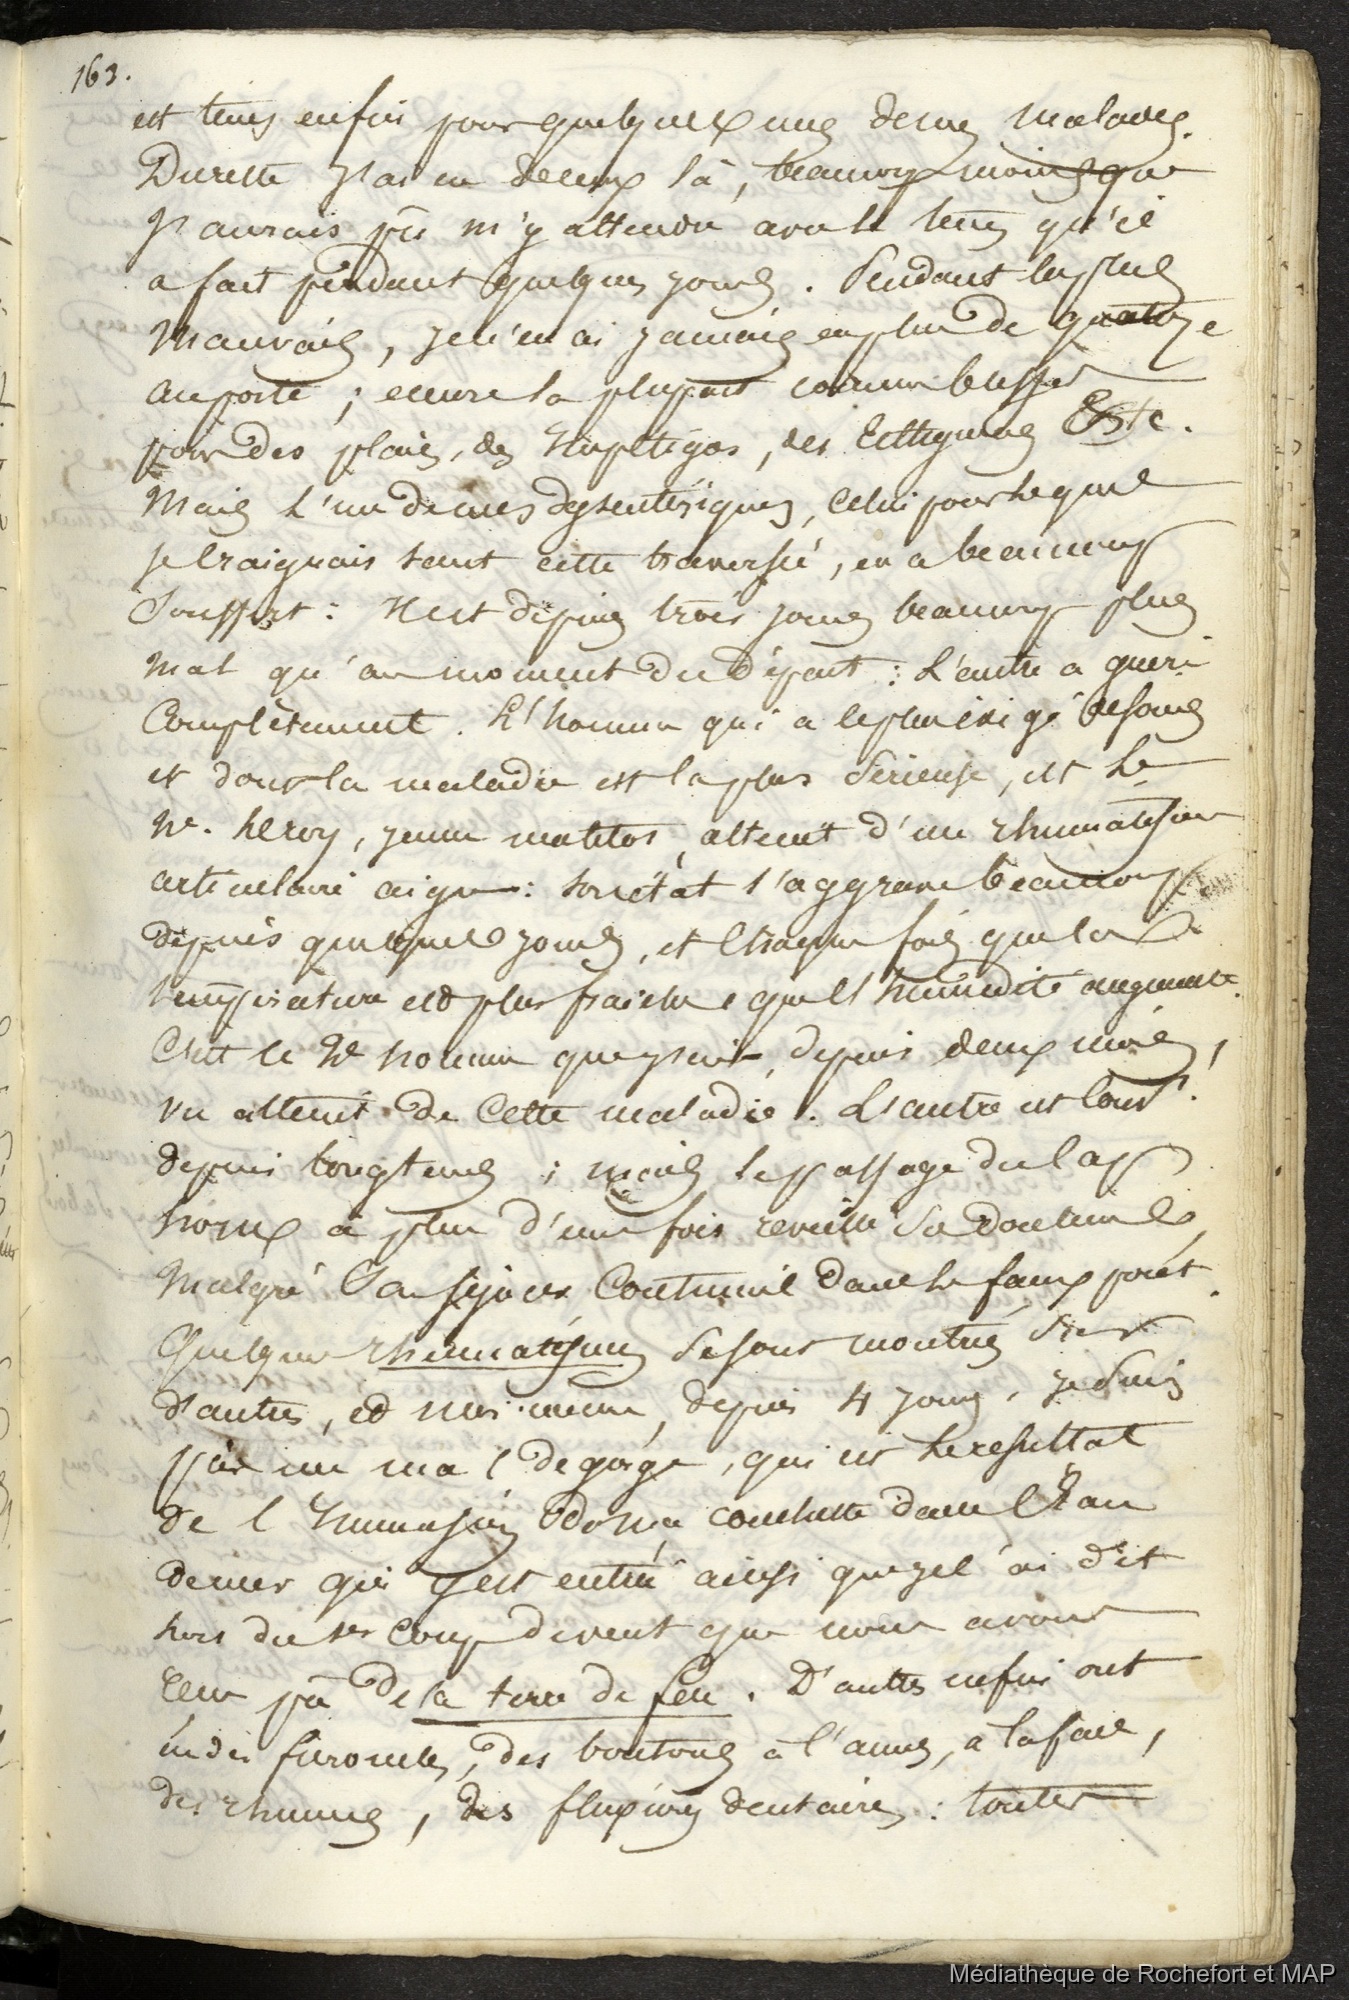 163.
est tems enfin pour quelques uns de mes malades.
Du reste j'ai eu de ceux là, beaucoup moins que
j'aurais pû m'y attendre avec le tems qu'il
a fait pendant quelques jours. Pendant les plus
mauvais, je n'en ai jamais eu plus de quatorze
au poste ; encore la plupart comme blessés
pour des plaies, des Impétigos, des Ecthymas &&c.
Mais l'un de mes dysentériques, celui pour lequel
je craignais tant cette traversée, en a beaucoup
souffert : Il est depuis trois jours beaucoup plus
mal qu'au moment du départ : L'autre a guéri
complètement. L'homme qui a le plus exigé de soins
et dont la maladie est la plus sérieuse, est le
né. Leroy, jeune matelot, atteint d'un rhumatisme
articulaire aigu : son état s'aggrave beaucoup
depuis quelques jours, et chaque fois que la
température est plus fraiche & que l'humidité augmente.
C'est le 2e homme que j'aie, depuis deux mois,
vu atteint de cette maladie. L'autre est conv.t
depuis longtems ; mais le passage du cap
horn a plus d'une fois reveillé ses douleurs,
malgré son séjour continuel dans le faux pont.
Quelques rhumatismes se sont montrés sur
d'autres, et moi-même, depuis 4 jours, je suis
pris un mal de gorge, qui est le résultat
de l'immersion de ma couchette dans l'Eau
de mer qui y est entrée ainsi que je l'ai dit
lors du 1er coup de vent que nous avons
reçu près de la terre de feu. D'autres enfin ont
eu des furoncles, des boutons à l'anus, à la face,
des rhumes, des fluxions dentaires : toutes
Médiathèque de Rochefort et MAP